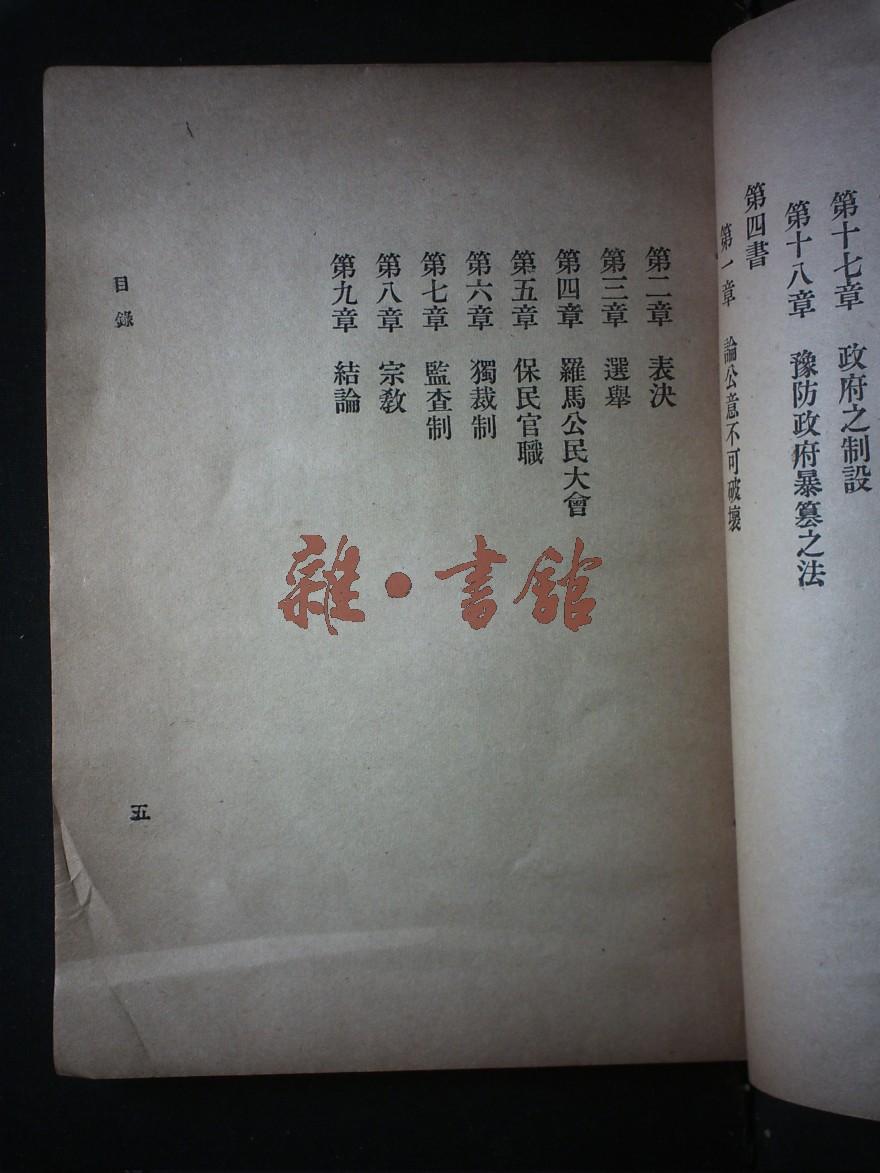 第十七章 政府之制設
第十八章 豫防政府暴篡之法
第四書
第一章 論公意不可破壞
第二章 表決
第三章 選舉
第四章 羅馬公民大會
第五章 保民官職
第六章 獨裁制
第七章 監查制
第八章 宗教
第九章 結論
目錄
五
雜·書館